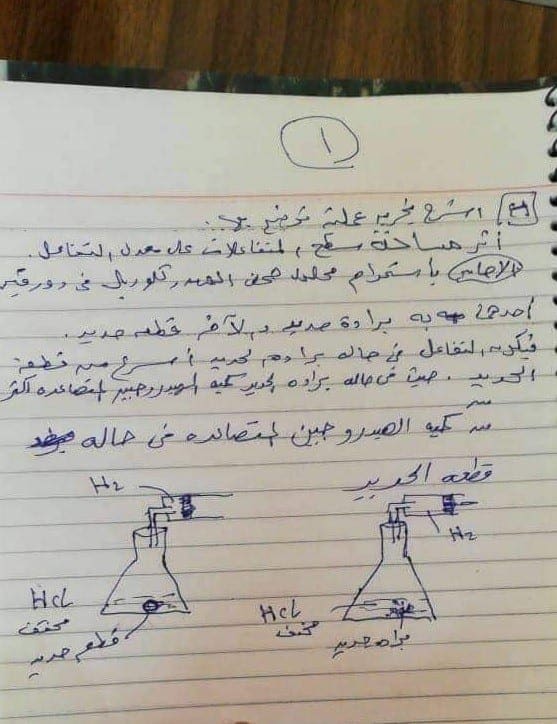 ١
اشرح تجربه عملية توضح بها..
أثر مساحة سطح المتفاعلات على معدل التفاعل.
الاجابه باستخدام محلول حمض الهيدروكلوريك فى دورقين
أحدهما به برادة حديد والآخر قطعه حديد.
فيكون التفاعل فى حاله براده الحديد أسرع من قطعة
الحديد. حيث فى حاله براده الحديد كميه الهيدروجين المتصاعده أكثر
من كميه الهيدروجين المتصاعده فى حاله
قطعه الحديد
H2
H2
HCl
مخفف
قطعه حديد
HCl
مخفف
براده حديد